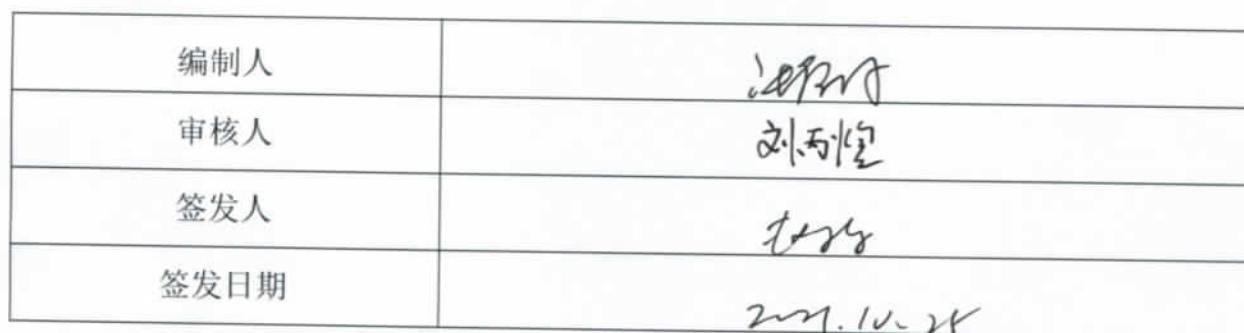 编制人
审核人 刘丙煌
签发人
签发日期 2021.10.25